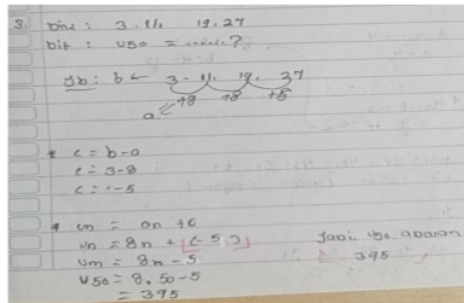 3. Dik : 3. 11, 19, 27
Dit : U50 = ......?
Jb : b ← 3. 11. 19. 27
+8 +8 +8
a
* c = b-a
c = 3-8
c = -5
* Un = an + c
Un = 8n + (-5)
Un = 8n - 5
U50 = 8. 50 - 5
= 395
Jadi, U50 adalah
395